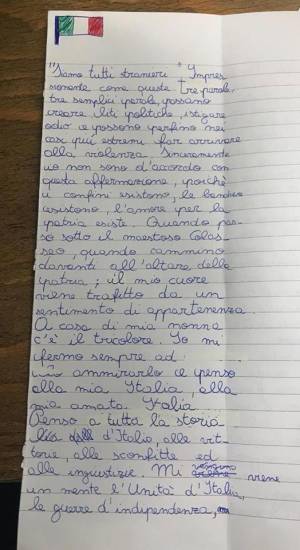 "Siamo tutti stranieri" Impres
sionante come queste tre parole,
tre semplici parole, possano
creare liti politiche, istigare
odio e possono perfino nei
casi più estremi far arrivare
alla violenza. Sinceramente
io non sono d'accordo con
questa affermazione, poiché
i confini esistono, le bandiere
esistono, l'amore per la
patria esiste. Quando pas-
so sotto il maestoso Colos-
seo, quando cammino
davanti all'altare della
patria; il mio cuore
viene trafitto da un
sentimento di appartenenza.
A casa di mia nonna
c'è il tricolore. Io mi
fermo sempre ad
ammirarlo e penso
alla mia Italia, alla
mia amata Italia.
Penso a tutta la storia
d'Italia, alle vit-
torie, alle sconfitte ed
alle ingiustizie. Mi viene
in mente l'Unità d'Italia,
le guerre d'indipendenza,